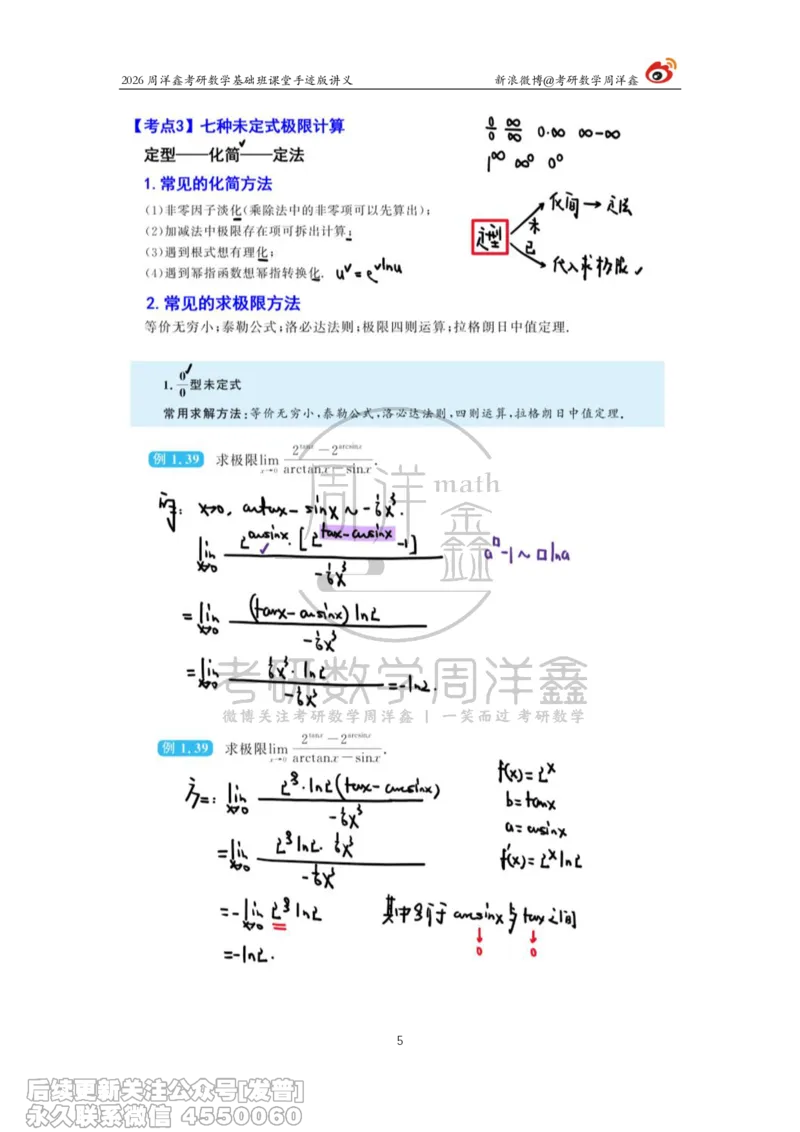 2026 周洋鑫考研数学基础班课堂手迹版讲义 新浪微博@考研数学周洋鑫
【考点3】七种未定式极限计算
定型——化简——定法
0/0 ∞/∞ 0·∞ ∞-∞
1^∞ ∞^0 0^0
1.常见的化简方法
(1)非零因子淡化(乘除法中的非零项可以先算出);
(2)加减法中极限存在项可拆出计算;
(3)遇到根式想有理化;
(4)遇到幂指函数想幂指转换化. u^v=e^{vlnu}
定型 未 化简→定法
已 代入求极限
2.常见的求极限方法
等价无穷小;泰勒公式;洛必达法则;极限四则运算;拉格朗日中值定理.
1. 0/0 型未定式
常用求解方法:等价无穷小,泰勒公式,洛必达法则,四则运算,拉格朗日中值定理.
例 1.39 求极限lim_{x→0} (2^{tanx}-2^{arcsinx})/(arctanx-sinx).
x→0, arctanx-sinx~-1/6x^3.
lim_{x→0} 2^{arcsinx}·[2^{tanx-arcsinx}-1]/(-1/6x^3)
a^□-1~□lna
=lim_{x→0} (tanx-arcsinx)ln2/(-1/6x^3)
=lim_{x→0} 1/6x^3·ln2/(-1/6x^3)=-ln2.
周洋鑫math
考研数学周洋鑫
微博关注考研数学周洋鑫 | 一笑而过 考研数学
例 1.39 求极限lim_{x→0} (2^{tanx}-2^{arcsinx})/(arctanx-sinx).
方二: lim_{x→0} 2^ξ·ln2(tanx-arcsinx)/(-1/6x^3)
f(x)=2^x
b=tanx
a=arcsinx
f'(x)=2^xln2
=lim_{x→0} 2^ξln2·1/6x^3/(-1/6x^3)
=-lim_{x→0} 2^ξln2 其中ξ介于arcsinx与tanx之间
0 0
=-ln2.
5
后续更新关注公众号[发普]
永久联系微信 4550060